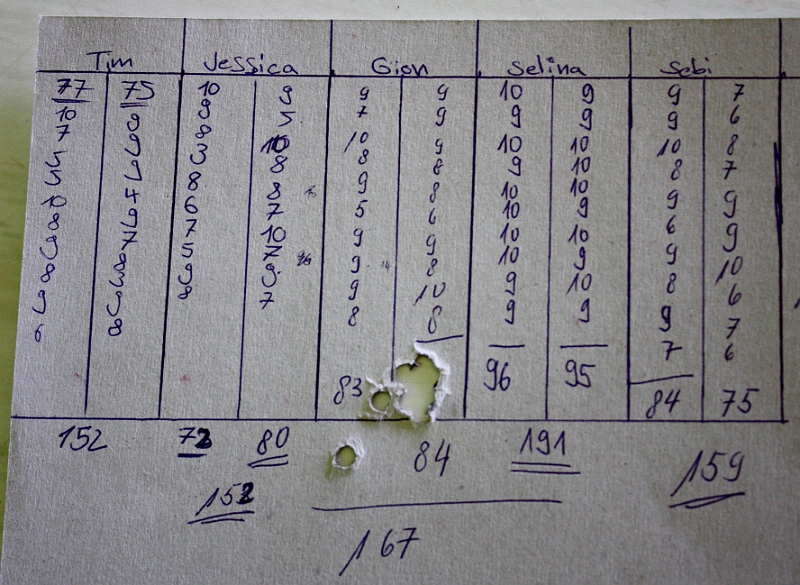 Tim Jessica Gion Selina Sebi
77 75 10 9 9 9 10 9 9 7
10 5 7 9 9 9 9 6
7 8 10 10 9 10 10 10 8
8 8 8 9 10 8 7
8 8 9 8 10 10 9 9
6 7 5 6 10 9 6 9
7 10 9 9 10 10 9 10
5 7 9 8 10 9 8 6
9 9 10 9 10 9 7
8 7 8 8 9 9 7 6
83 96 95 84 75
152 72 80 84 191 159
152
167